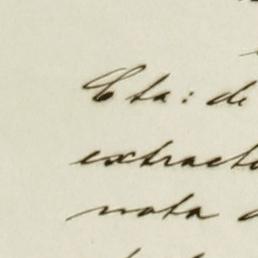 Cta: de
extracto
nota